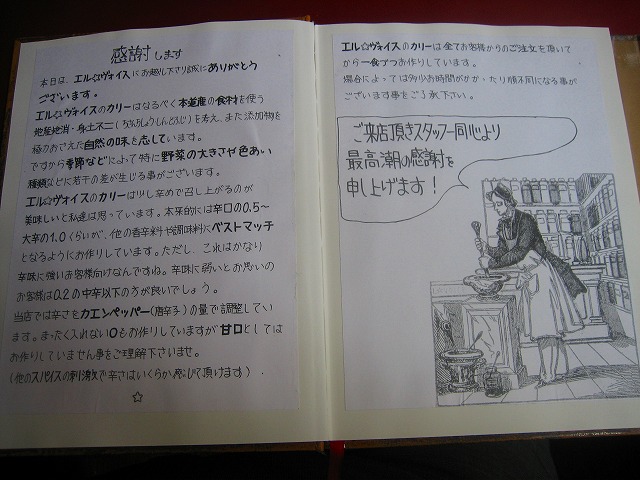 感謝します
本日は、エル☆ヴォイスにお越し下さり誠にありがとう
ございます。
エル☆ヴォイスのカリーはなるべく本道産の食材を使う
地産地消・身土不二(ちさんちしょう・しんどふじ)を考え、また添加物を
極力おさえた自然の味を志しています。
ですから季節などによって特に野菜の大きさや色あい
種類などに若干の差が生じる事がございます。
エル☆ヴォイスのカリーは少し辛めで召し上がるのが
美味しいと私達は思っています。本来的には辛口の0.5〜
大辛の1.0くらいが、他の香辛料や調味料にベストマッチ
となるようにお作りしています。ただし、これはかなり
辛味に強いお客様向けなんですね。辛味に弱いとお思いの
お客様は0.2の中辛以下の方が良いでしょう。
当店では辛さをカエンペッパー(唐辛子)の量で調整してい
ます。まったく入れない0もお作りしていますが甘口としては
お作りしていません事をご理解下さいませ。
(他のスパイスの刺激で辛さはいくらか感じて頂けます)
☆
エル☆ヴォイスのカリーは全てお客様からのご注文を頂いて
から一食づつお作りしています。
場合によっては多少お時間がかかったり順不同になる事が
ございます事をご了承下さい。
ご来店頂きスタッフ一同心より
最高潮の感謝を
申し上げます！